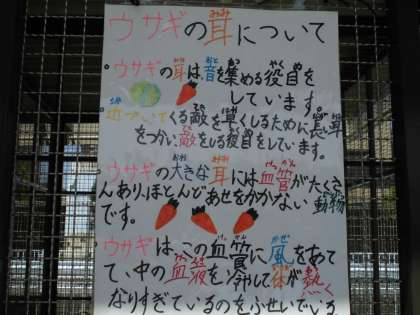 ウサギの耳について
みみ
。ウサギの耳は、音を集める役目を
しています。
近づいてくる敵を早くしるために長い耳
をつかい、敵をしる役目をしています。
ウサギの大きな耳には血管がたくさ
んあり、ほとんどあせをかかない動物
です。
ウサギは、この血管に風をあて
て、中の血液を冷して体が熱く
なりすぎているのをふせいでいる